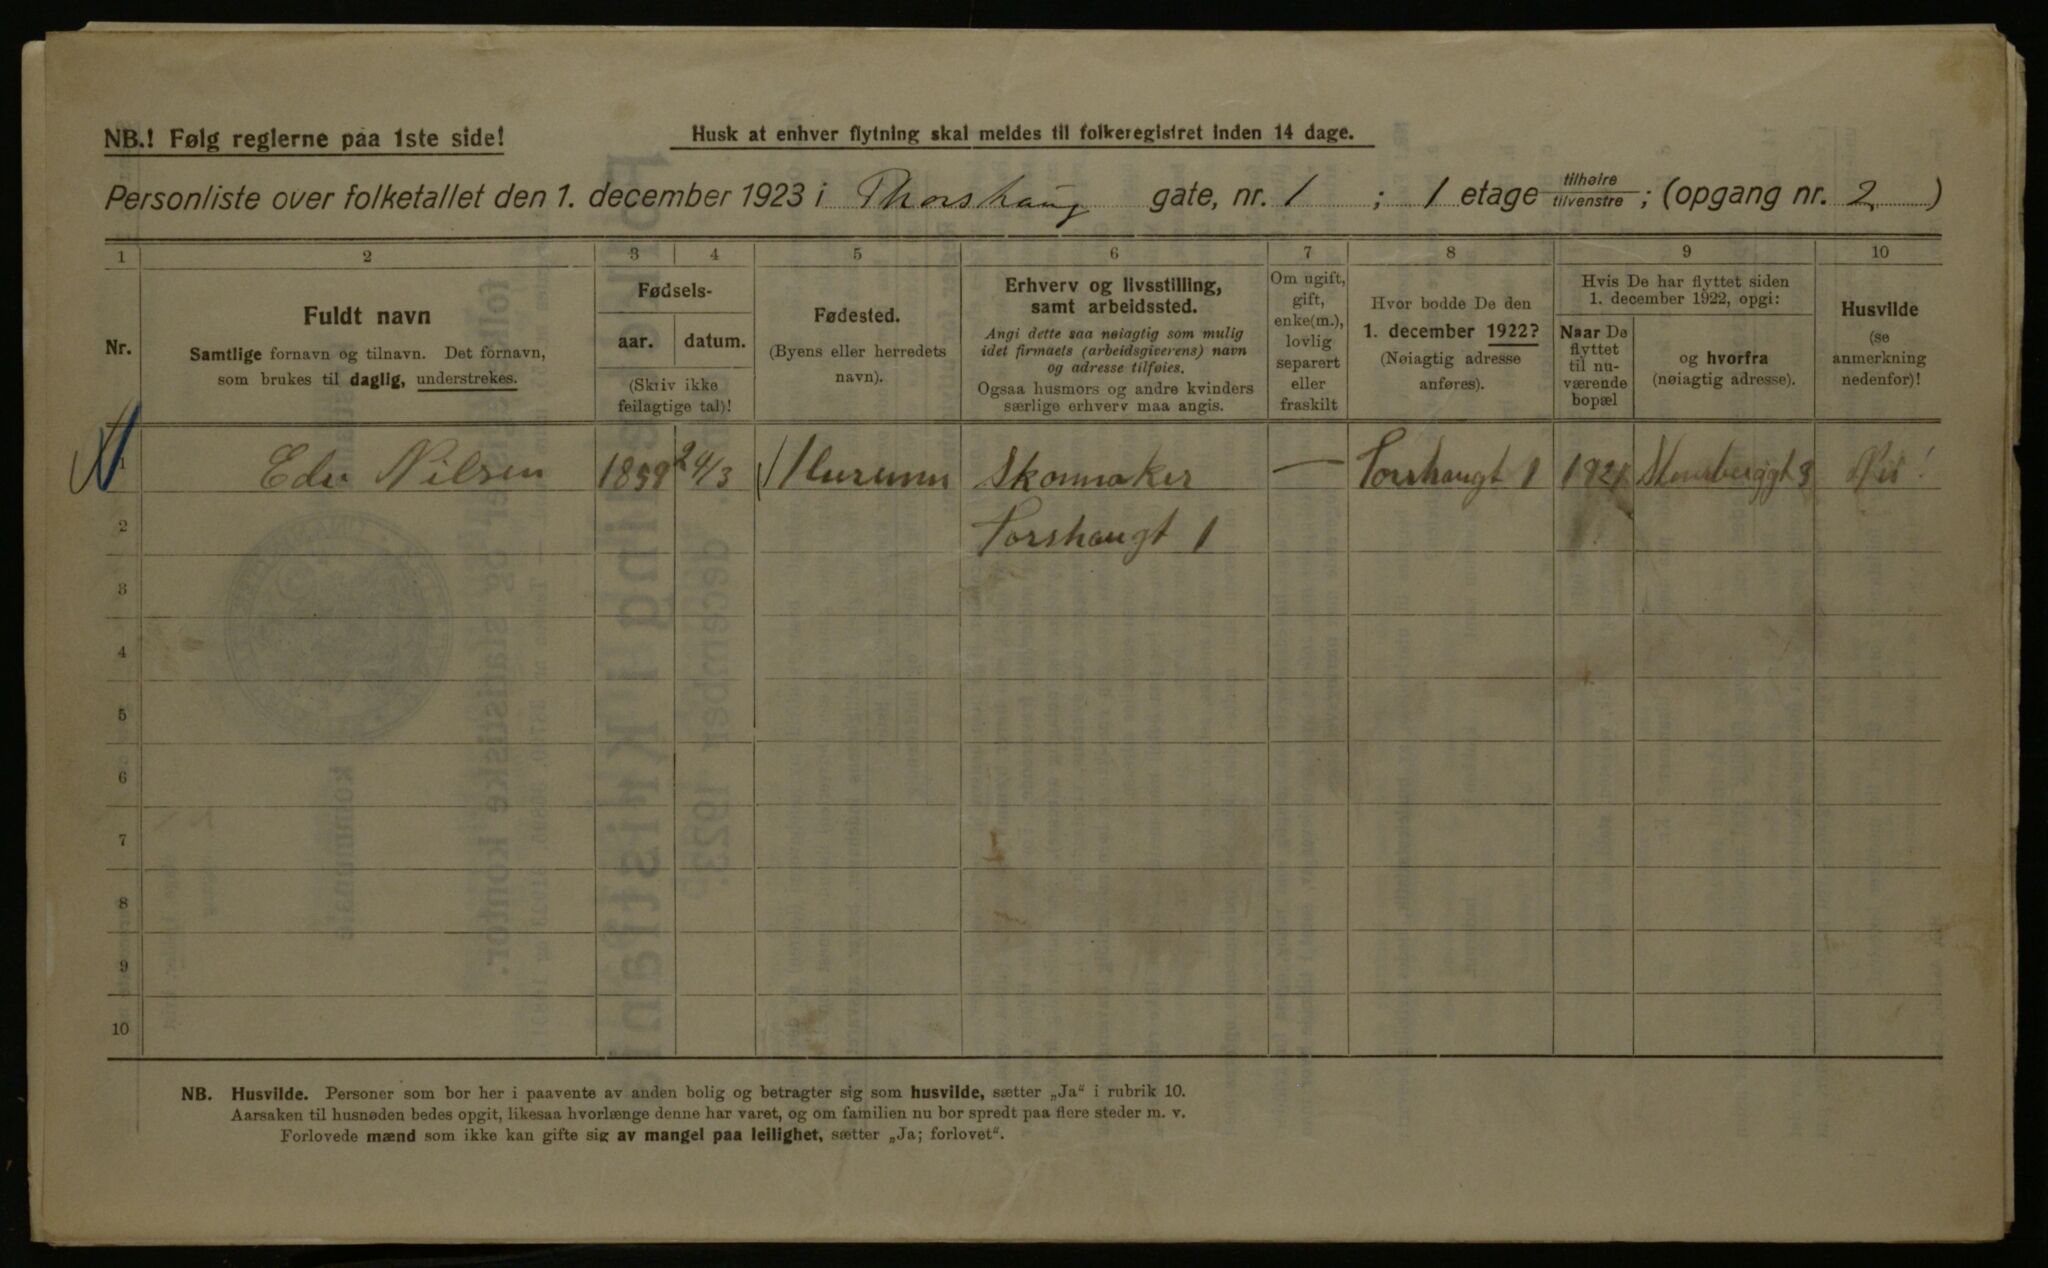 NB.! Følg reglerne paa 1ste side!
Husk at enhver flytning skal meldes til folkeregistret inden 14 dage.
Personliste over folketallet den 1. december 1923 i Thorshaug gate, nr. 1 ; 1 etage tilhøire tilvenstre ; (opgang nr. 2 )
1 2 3 4 5 6 7 8 9 10
Nr.
Fuldt navn
Samtlige fornavn og tilnavn. Det fornavn,
som brukes til daglig, understrekes.
Fødsels-
aar. datum.
(Skriv ikke
feilagtige tal)!
Fødested.
(Byens eller herredets
navn).
Erhverv og livsstilling,
samt arbeidssted.
Angi dette saa nøiagtig som mulig
idet firmaets (arbeidsgiverens) navn
og adresse tilføies.
Ogsaa husmors og andre kvinders
særlige erhverv maa angis.
Om ugift,
gift,
enke(m.),
lovlig
separert
eller
fraskilt
Hvor bodde De den
1. december 1922?
(Nøiagtig adresse
anføres).
Hvis De har flyttet siden
1. december 1922, opgi:
Naar De
flyttet
til nu-
værende
bopæl
og hvorfra
(nøiagtig adresse).
Husvilde
(se
anmerkning
nedenfor)!
1 Edv Nilsen 1859 24/3 Hurum Skomaker — Torshaugt 1 1921 Stensberggt 3
2 Torshaugt 1
3
4
5
6
7
8
9
10
NB. Husvilde. Personer som bor her i paavente av anden bolig og betragter sig som husvilde, sætter „Ja“ i rubrik 10.
Aarsaken til husnøden bedes opgit, likesaa hvorlænge denne har varet, og om familien nu bor spredt paa flere steder m. v.
Forlovede mænd som ikke kan gifte sig av mangel paa leilighet, sætter „Ja; forlovet“.